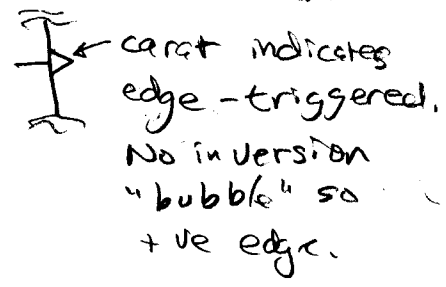 carat indicates
edge-triggered.
No inversion
"bubble" so
+ve edge.